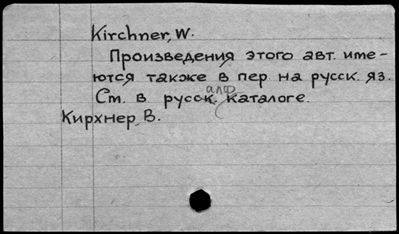 Kirchner, W.
Произведения этого авт. име-
ются также в пер. на русск. яз.
См. в русск. алф. каталоге.
Кирхнер, В.